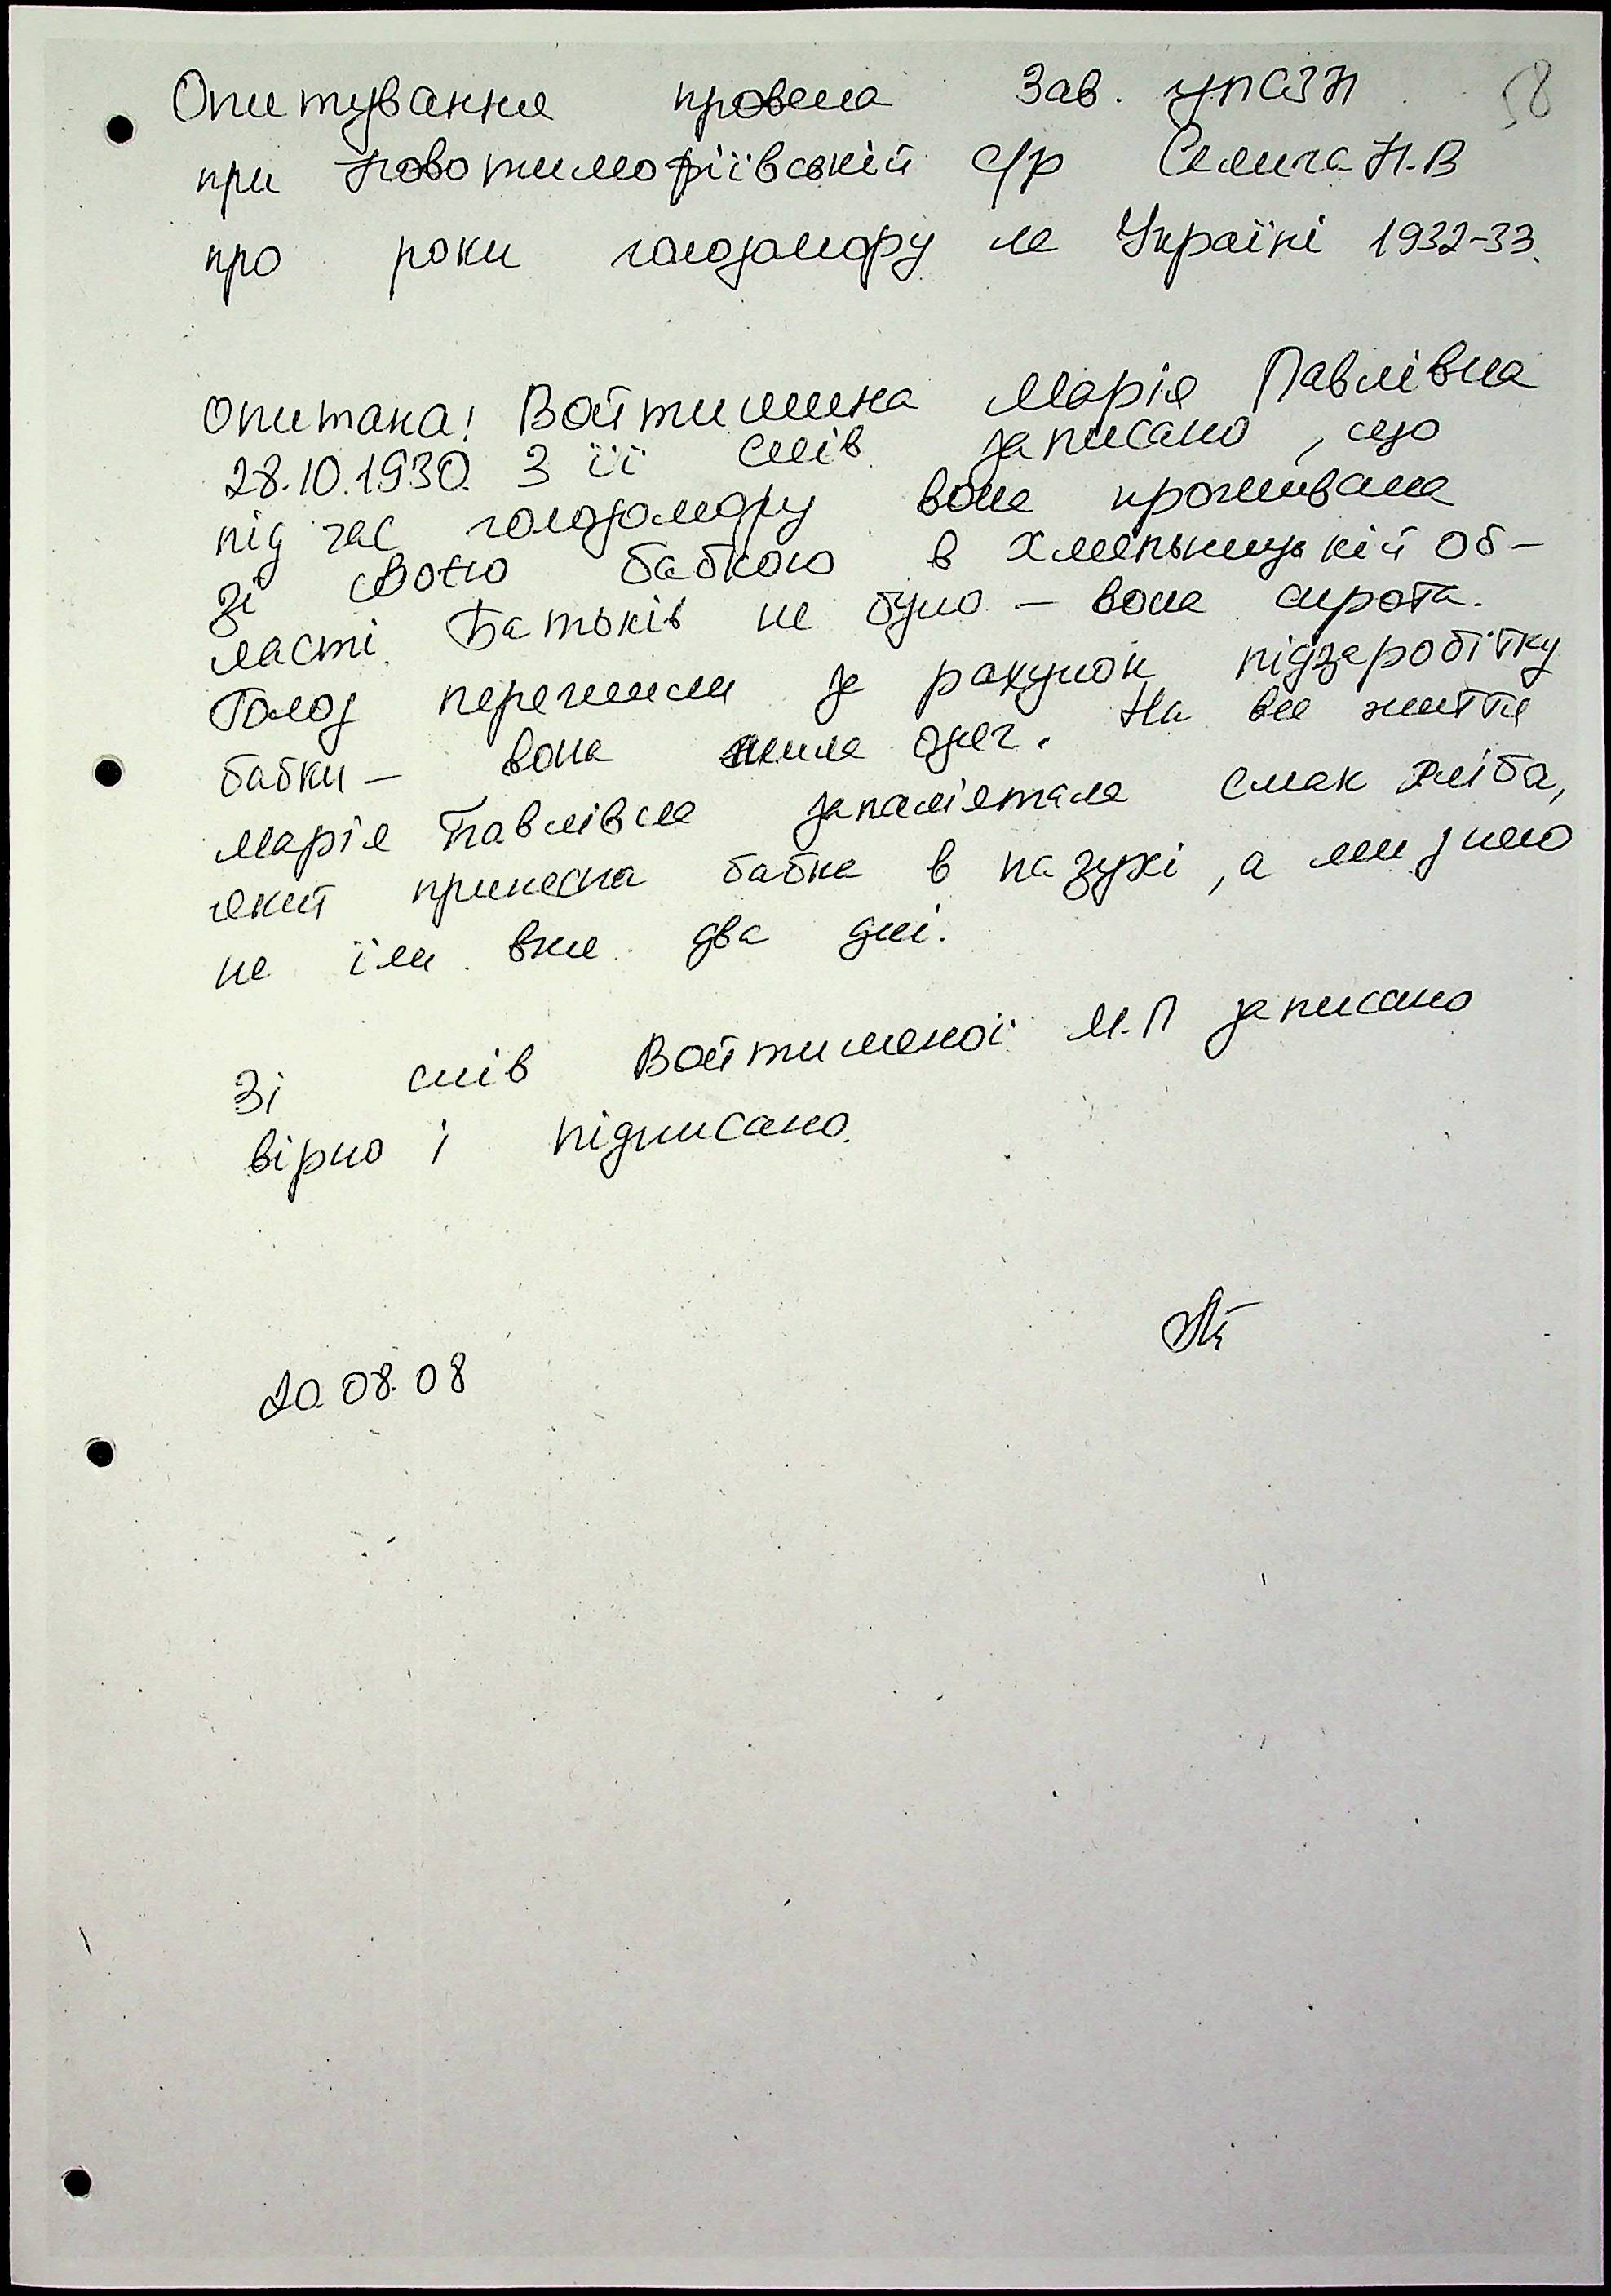 Опитування провела Зав. УПСЗН 58
при Новотимофіївській с/р Селига Н.В
про роки голодомору на Україні 1932-33.
Опитана! Войтишина Марія Павлівна
28.10.1930. З її слів записано, що
під час голодомору вона проживала
зі своєю бабкою в Хмельницькій об-
ласті. Батьків не було - вона сирота.
Голод пережили за рахунок підзаробітку
бабки - вона шила одяг. На все життя
Марія Павлівна запам'ятала смак хліба,
який принесла бабка в пазухі, а ми з нею
не їли вже два дні.
Зі слів М.П записано
вірно і підписано.
20.08.08